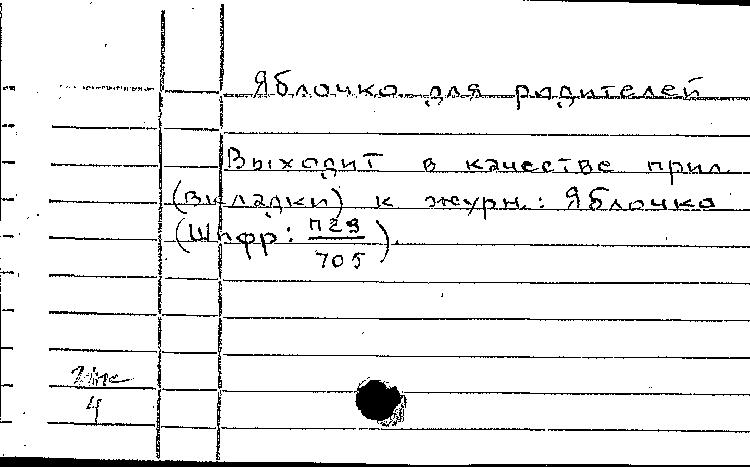 Яблочко для родителей
Выходит в качестве прил.
(вкладки) к журн.: Яблочко
(Шифр: П29
705).
4